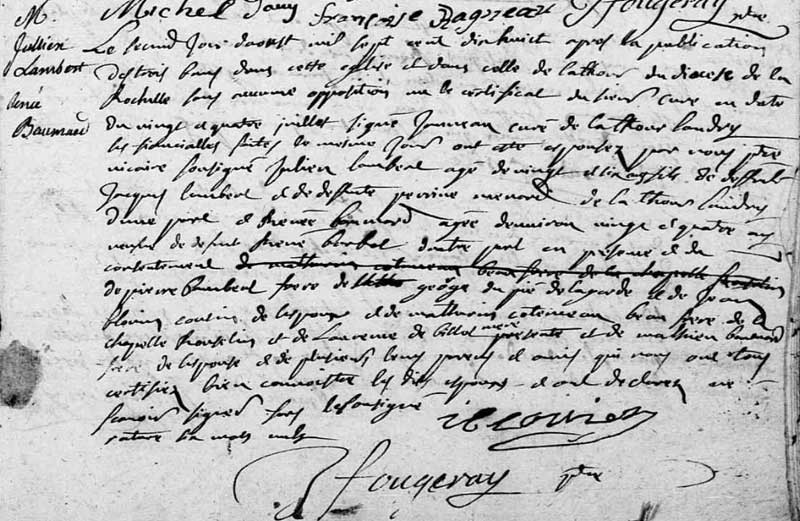 Michel Davy françoise Ragneau Ffougeray ptre
M. Jullien Lambert
Renée Baumard
Le second Jour daoust mil sept cent dixhuict apres la publication
destrois bans dans cette eglise et dans celle de lathour du diocese de la
Rochelle sans aucune opposition vu le certificat du sieur curé en date
du vingt et quatre juillet signé Jouneau curé de la thour landry
les fiancialles faites de mesme Jour ont été espousez par nous ptre
vicaire soussigné Julien lambert agé de vingt et cinq fils de deffunt
Jacques lambert et de defunte perrine menard de la thour landry
dune part et Renée baumard agée denviron vingt et quatre ans
de defunt René d'autre part en presence et du
consentement de mathurin coteneau beau frere de la chapelle
de pierre lambert frere de george du pin de lagarde et de Jean
blouin cousin de lespoux et de mathurin coteneau beau frere de la
chapelle Rousselin et de Laurence de billot mere presente et de mathieu baumard
frere de lespouse et de plusieurs leurs parens et amis qui nous ont tous
certifiez bien connoistre les dits espoux et ont declarez ne
scavoir signer fors lesoussigné
rature six mots nuls
Ffougeray ptre